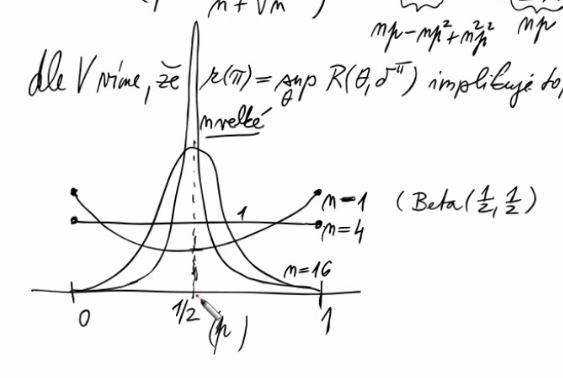 n + √n )
np - np² + n²p² np
dle V víme, že r(π) = sup R(θ, δ^π) implikuje to,
θ
n velké
n=1 (Beta(1/2, 1/2)
1 n=4
n=16
0 1/2 1
(p)